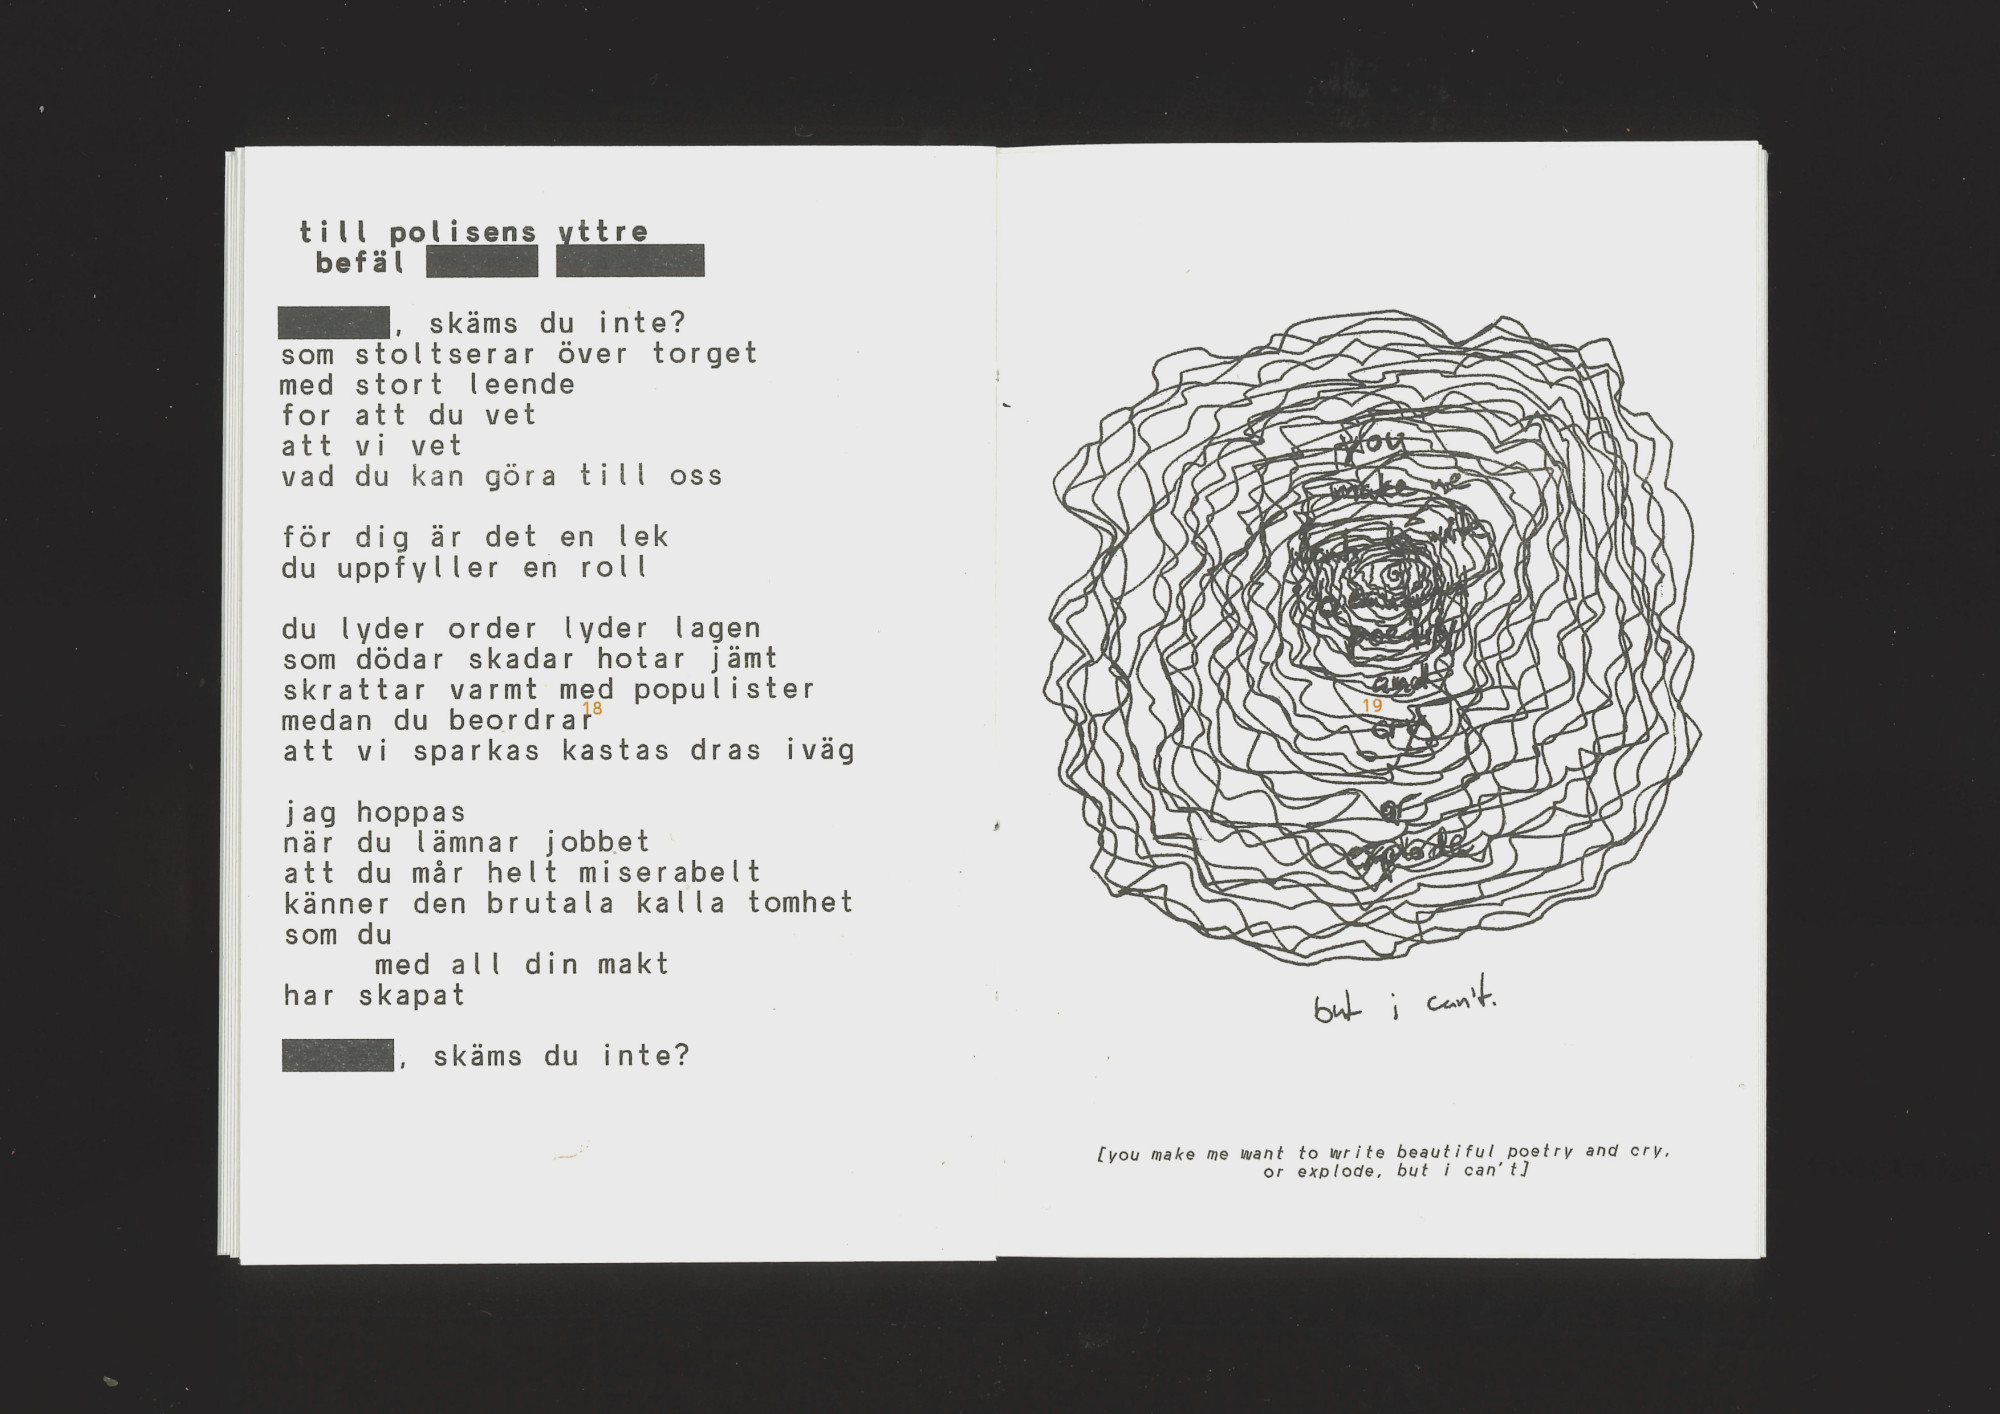 till polisens yttre
befäl
, skäms du inte?
som stoltserar över torget
med stort leende
for att du vet
att vi vet
vad du kan göra till oss
för dig är det en lek
du uppfyller en roll
du lyder order lyder lagen
som dödar skadar hotar jämt
skrattar varmt med populister
medan du beordrar
att vi sparkas kastas dras iväg
jag hoppas
när du lämnar jobbet
att du mår helt miserabelt
känner den brutala kalla tomhet
som du
med all din makt
har skapat
, skäms du inte?
18
you
make me
want to write
beautiful
poetry
and
cry
or
explode
19
but i can't.
[you make me want to write beautiful poetry and cry,
or explode, but i can't]